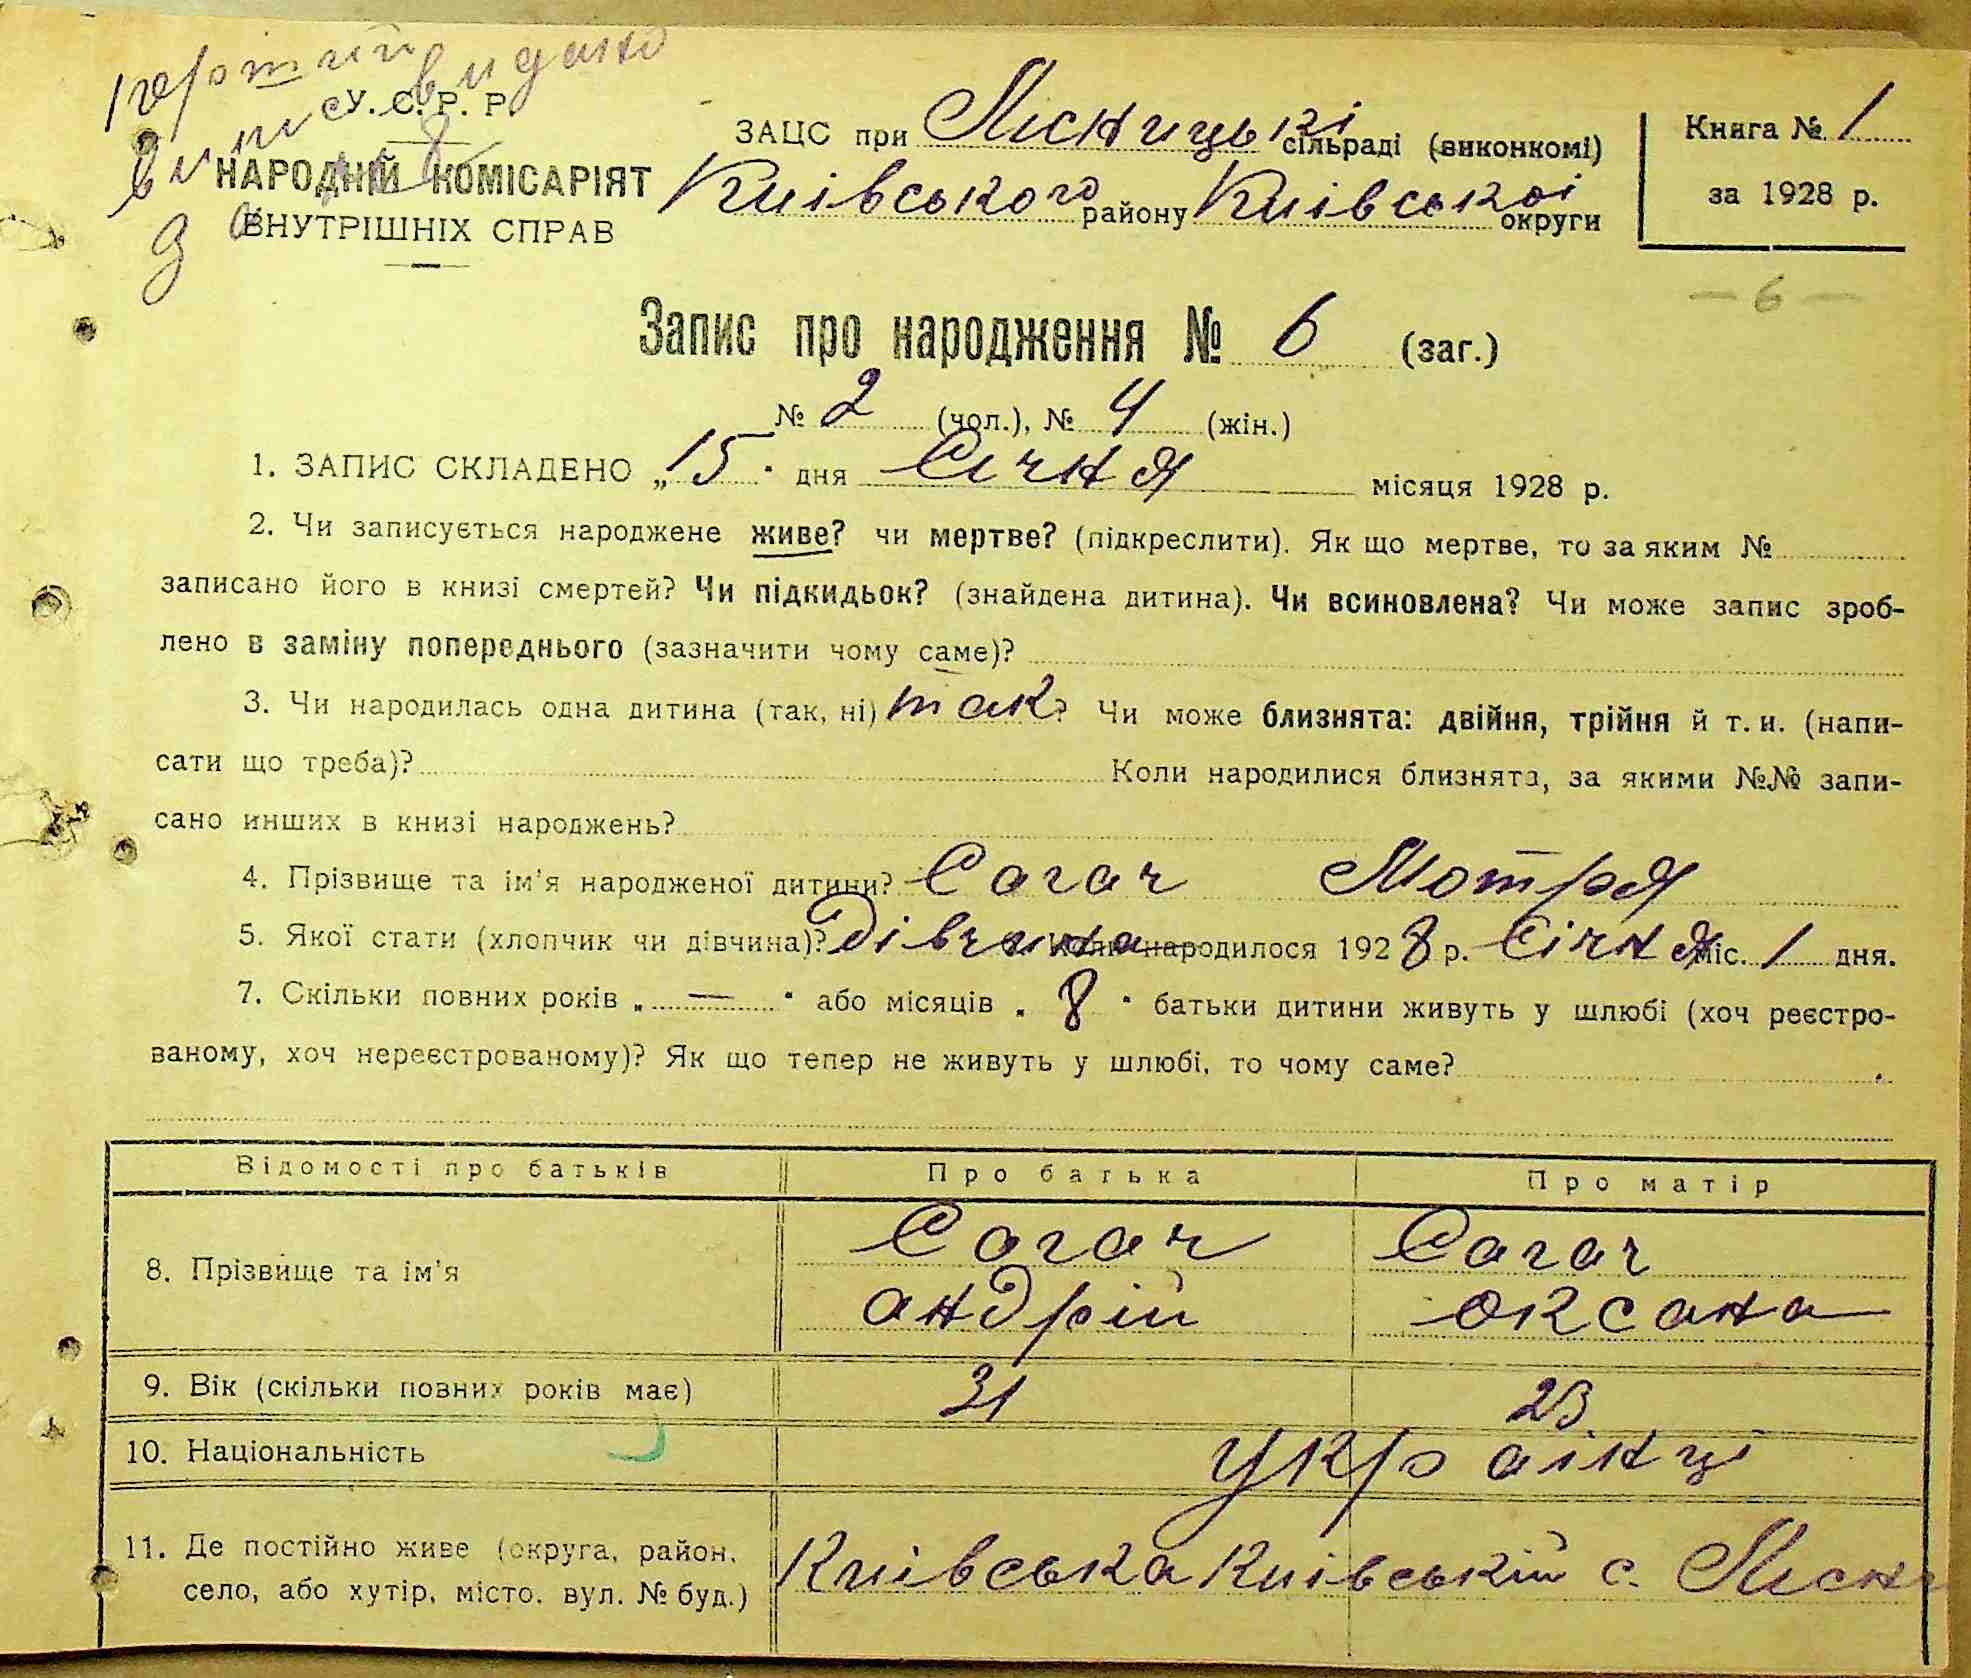 У. С. Р. Р.
НАРОДНІЙ КОМІСАРІЯТ
ВНУТРІШНІХ СПРАВ
ЗАЦС при Лісницькі сільраді (виконкомі)
Київського району Київської округи
Книга № 1
за 1928 р.
— 6 —
Запис про народження № 6 (заг.)
№ 2 (чол.), № 4 (жін.)
1. ЗАПИС СКЛАДЕНО „15" дня Січня місяця 1928 р.
2. Чи записується народжене живе? чи мертве? (підкреслити). Як що мертве, то за яким №
записано його в книзі смертей? Чи підкидьок? (знайдена дитина). Чи всиновлена? Чи може запис зроб-
лено в заміну попереднього (зазначити чому саме)?
3. Чи народилась одна дитина (так, ні) так? Чи може близнята: двійня, трійня й т. и. (напи-
сати що треба)? Коли народилися близнята, за якими №№ запи-
сано инших в книзі народжень?
4. Прізвище та ім'я народженої дитини? Сагач Мотря
5. Якої стати (хлопчик чи дівчина)? Дівчина Коли народилося 1928 р. Січня міс. 1 дня.
7. Скільки повних років „ — " або місяців „ 8 " батьки дитини живуть у шлюбі (хоч реєстро-
ваному, хоч нереєстрованому)? Як що тепер не живуть у шлюбі, то чому саме?
Відомості про батьків Про батька Про матір
8. Прізвище та ім'я Сагач Андрій Сагач Оксана
9. Вік (скільки повних років має) 31 23
10. Національність Українці
11. Де постійно живе (округа, район,
село, або хутір, місто, вул. № буд.) Київська Київській с.